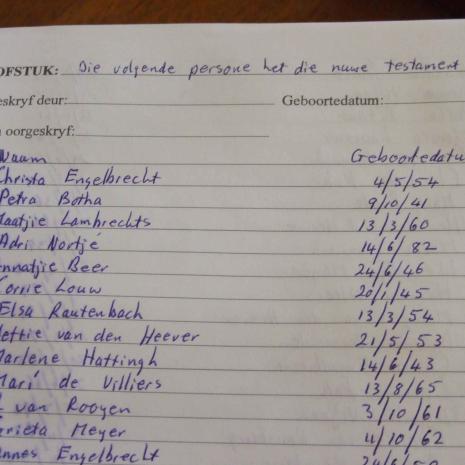 OFSTUK: Die volgende persone het die nuwe testament
eskryf deur: Geboortedatum:
oorgeskryf:
Naam Geboortedatu
Christa Engelbrecht 4/5/54
Petra Botha 9/10/41
aatjie Lambrechts 13/3/60
Adri Nortjé 14/6/82
nnatjie Beer 24/6/46
Corrie Louw 20/1/45
Elsa Rautenbach 13/3/54
ettie van den Heever 21/5/53
Marlene Hattingh 14/6/43
Mari de Villiers 13/8/65
van Rooyen 3/10/61
rieta Meyer 4/10/62
nnes Engelbrecht